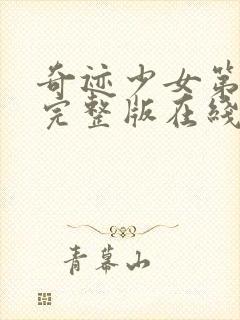 奇迹少女第
完整版在线
青幕山